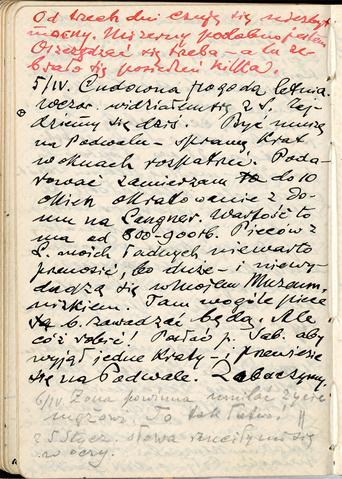 Od trzech dni czuję się niezbyt
mocny. Mizerny podobno jestem
Oszczędzać się trzeba – a tu ze-
brało się posiedzeń kilka.
5/IV. Cudowna pogoda letnia.
wczor. widziałem się z S. Zej-
dziemy się dziś. Być muszę
na Podwalu – sprawę krat
w oknach rozpatrzeć. Poda-
rować zamierzam do 10
okien okratowanie z do-
mu na Langner. Wartość to
ma od 800-900 zł. Pieców z
L. moich ładnych nie warto
przenosić, bo duże – i niewy-
dadzą się w moim Muzeum
nizkiem. Tam wogóle piece
b. zawadzać będą. Ale
cóż robić! Posłać p. Jab. aby
wyjął jedne kraty – i przeniesie
się na Podwale. Zobaczymy.
6/IV Żona powinna umilać życie
mężowi. To tak łatwo!
z 5 Stycz. słowa rzuciły mi się
w oczy.